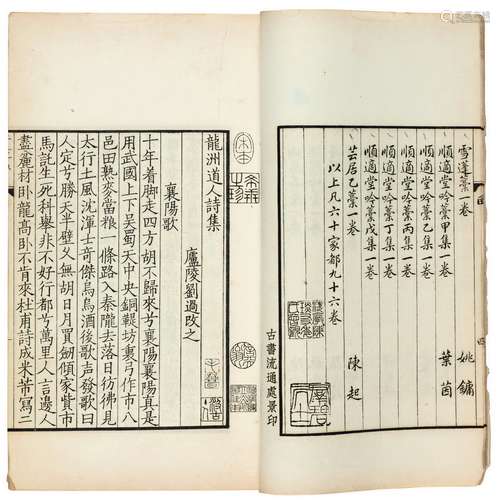 雪蓬藁一卷 姚鏞
順適堂吟藁甲集一卷 葉茵
順適堂吟藁乙集一卷
順適堂吟藁丙集一卷
順適堂吟藁丁集一卷
順適堂吟藁戊集一卷
芸居乙藁一卷 陳起
以上凡六十家都九十六卷
古書流通處景印
龍洲道人詩集
廬陵劉過改之
襄陽歌
十年着脚走四方胡不歸來兮襄陽襄陽真是
用武國上下吳蜀天中央銅鞮坊裏弓作市八
邑田熟麥當粮一條路入秦隴去落日彷彿見
太行土風沈渾士奇傑烏烏酒後歌聲發歌曰
人定兮勝天半壁久無胡日月買劒傾家貲市
馬託生死科舉非不好行都兮萬里人言邊人
盡麄材卧龍高卧不肯來杜甫詩成米芾寫二